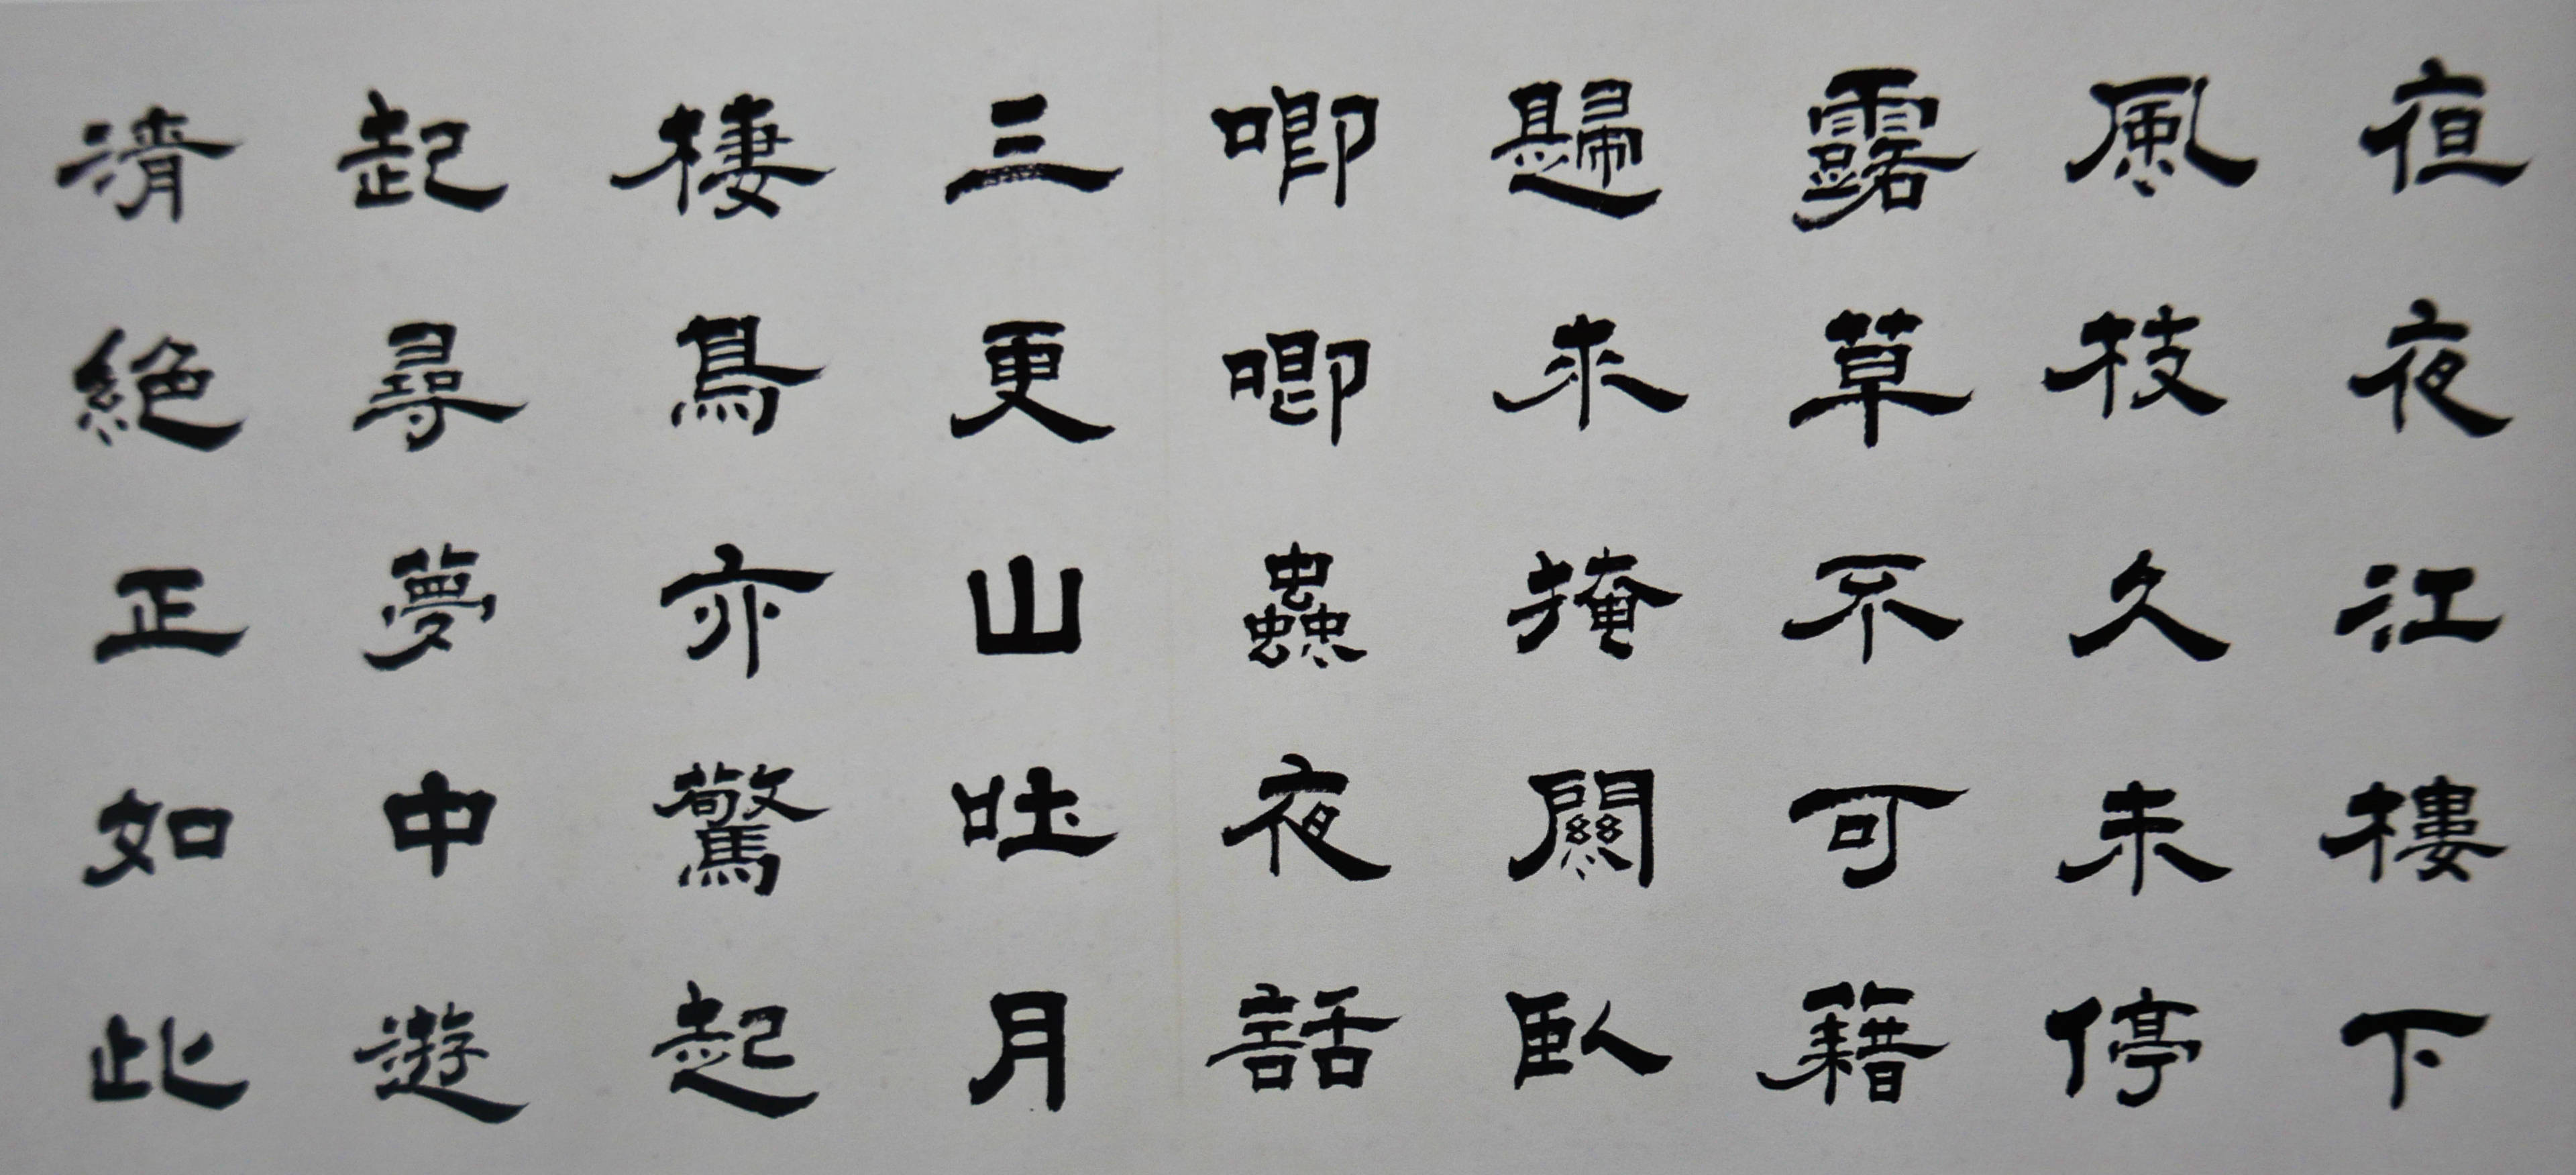 亱夜江樓下
風枝久未停
露草不可籍
歸來掩關臥
唧唧蟲夜話
三更山吐月
棲鳥亦驚起
起尋夢中遊
清絕正如此